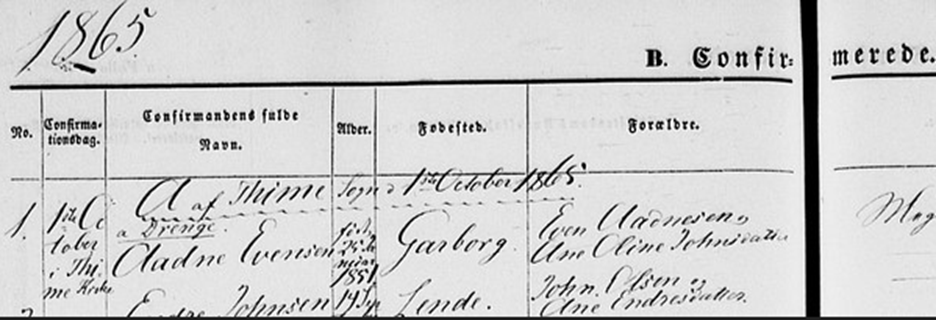 1865
B. Confir= merede.
No. Confirma- tionsdag. Confirmandens fulde Navn. Alder. Fødested. Forældre.
A af Thime Sogn d 1ste October 1865.
a Drenge.
1. 1ste Oc
tober
i Thi
me Kirke
Aadne Evensen
1851
Garborg.
Even Aadnesen og
Ane Oline Johnsdatter
Endre Johnsen
Lende.
John Olsen og
Ane Endresdatter.